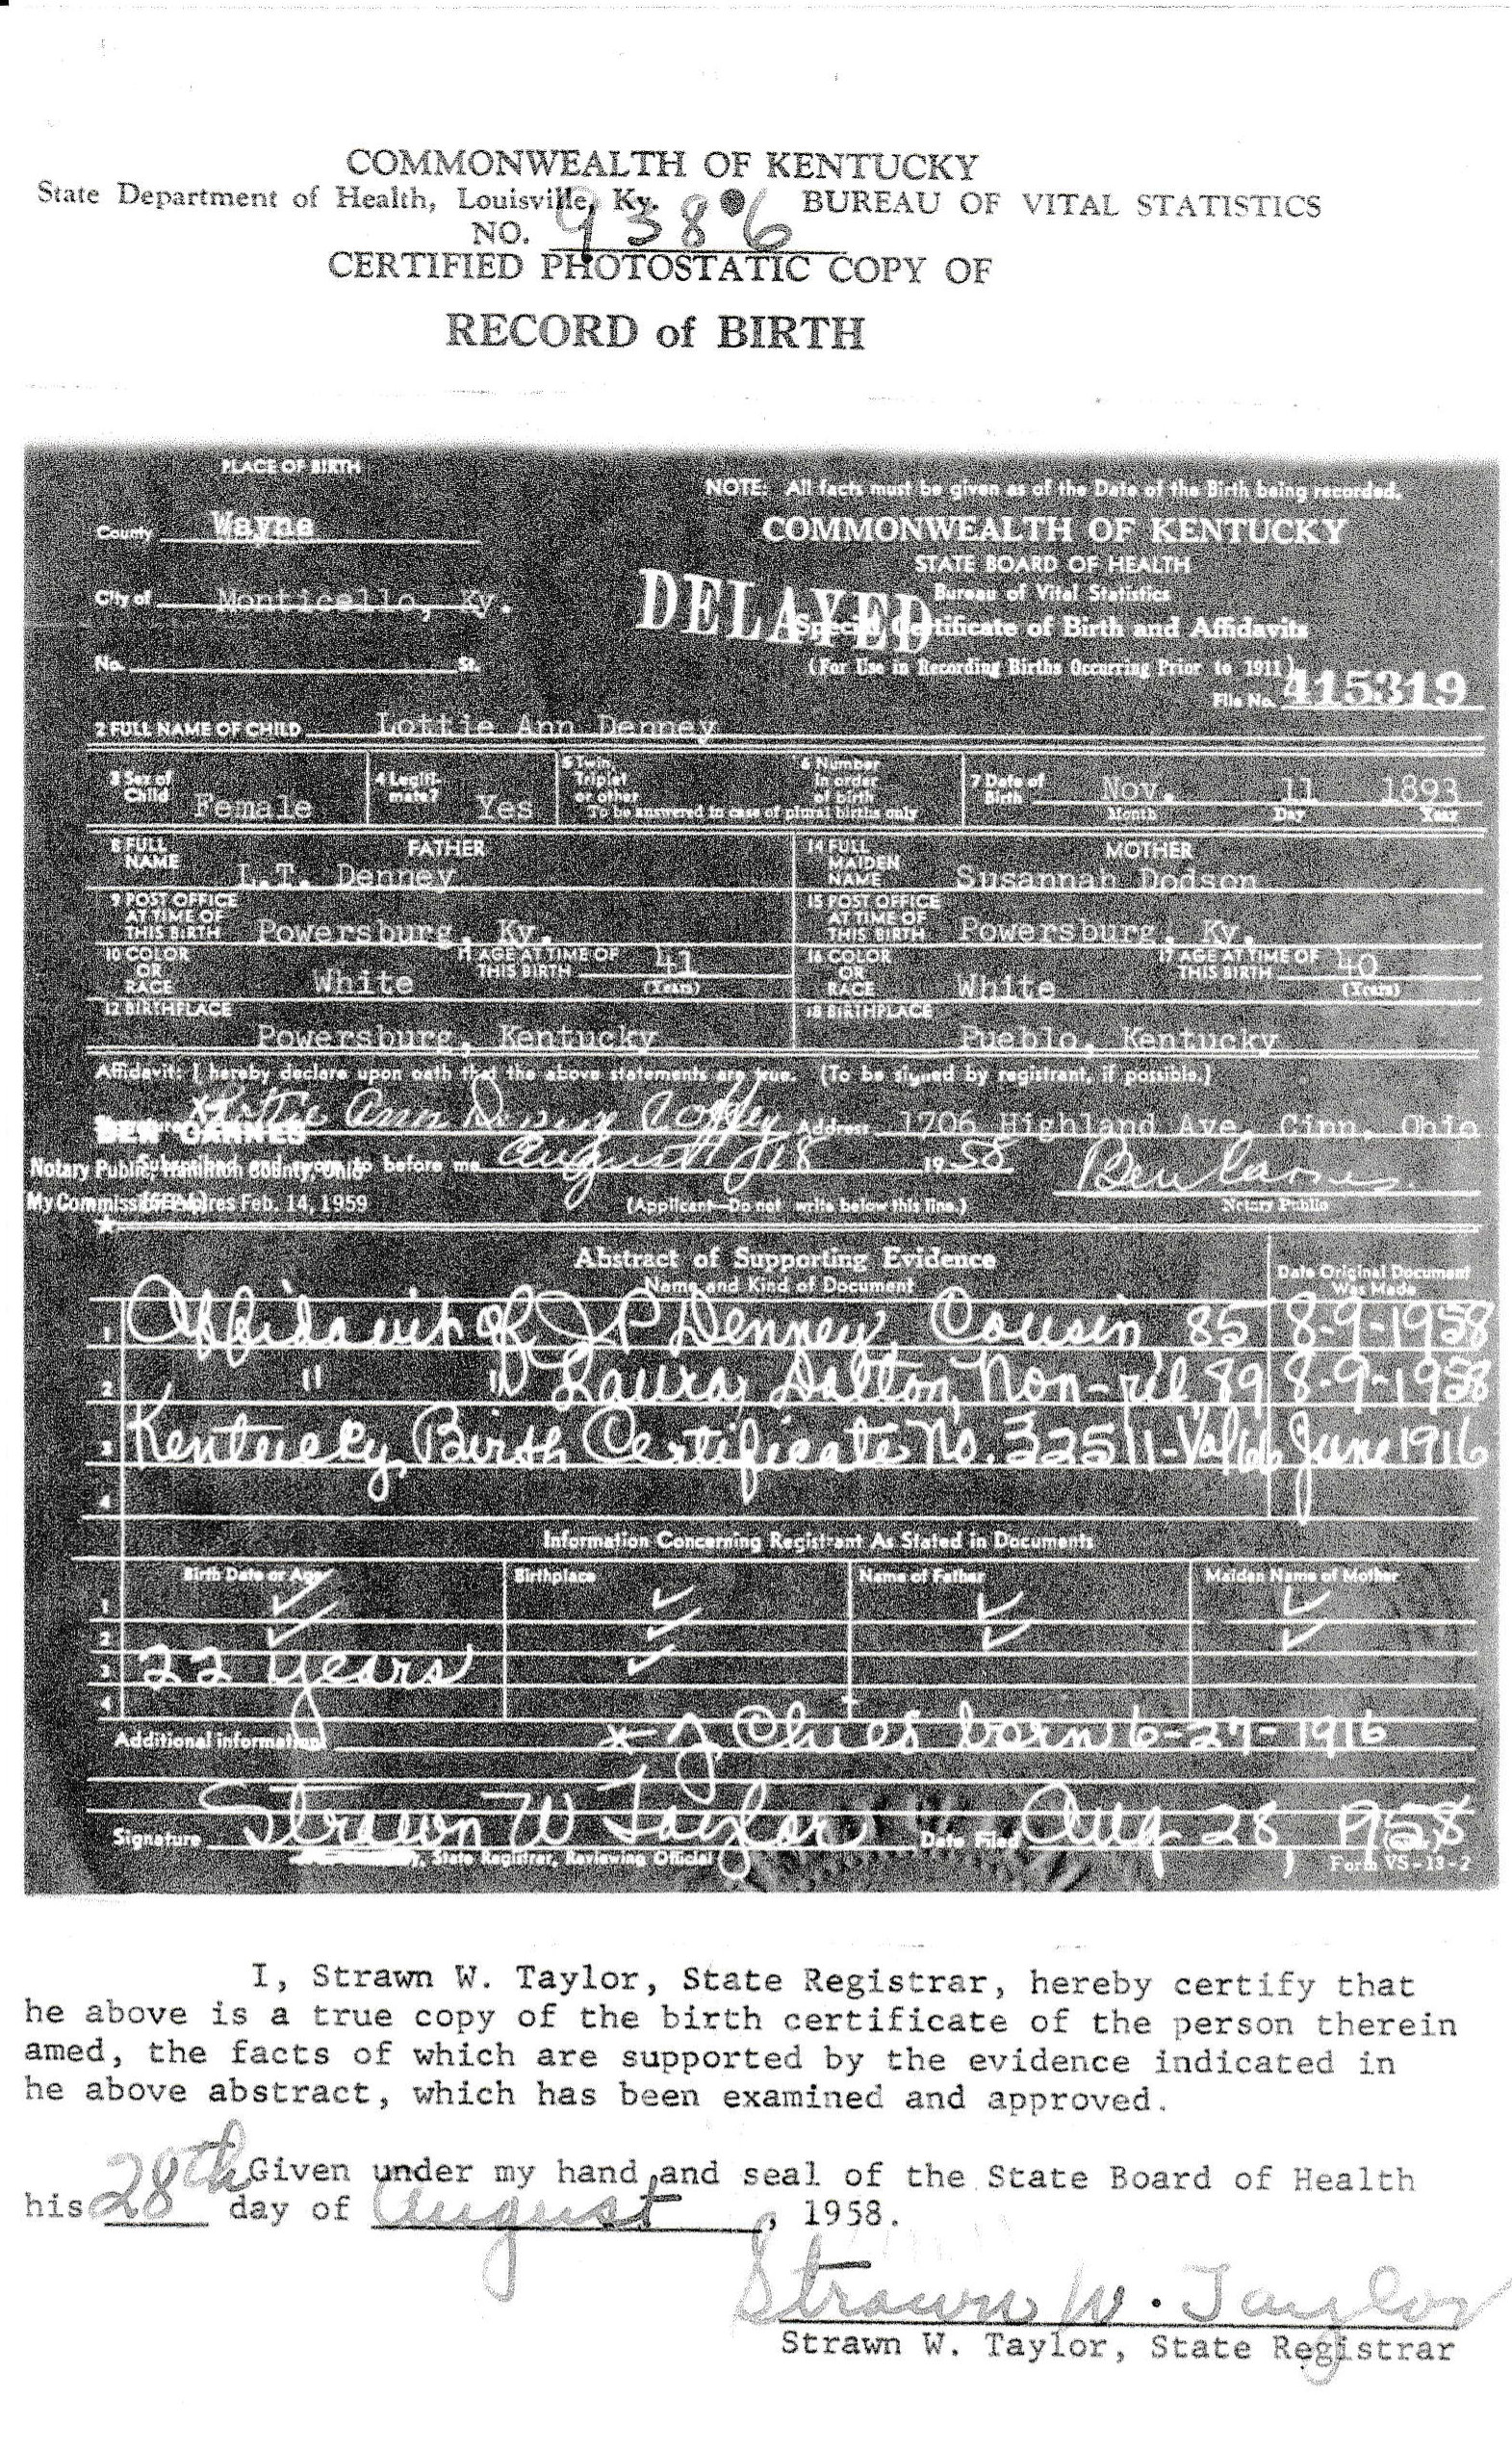 COMMONWEALTH OF KENTUCKY
State Department of Health, Louisville, Ky. BUREAU OF VITAL STATISTICS
NO. 9386
CERTIFIED PHOTOSTATIC COPY OF
RECORD of BIRTH
PLACE OF BIRTH
NOTE: All facts must be given as of the Date of the Birth being recorded.
County Wayne
COMMONWEALTH OF KENTUCKY
STATE BOARD OF HEALTH
City of Monticello, Ky.
DELAYED
Bureau of Vital Statistics
Special Certificate of Birth and Affidavits
No. St.
(For Use in Recording Births Occurring Prior to 1911)
File No. 415319
2 FULL NAME OF CHILD Lottie Ann Denney
3 Sex of Child Female
4 Legiti-mate? Yes
5 Twin, Triplet or other
6 Number in order of birth
To be answered in case of plural births only
7 Date of Birth Nov. 11 1893
Month Day Year
FATHER
8 FULL NAME L.T. Denney
MOTHER
14 FULL MAIDEN NAME Susannah Dodson
9 POST OFFICE AT TIME OF THIS BIRTH Powersburg, Ky.
15 POST OFFICE AT TIME OF THIS BIRTH Powersburg, Ky.
10 COLOR OR RACE White
11 AGE AT TIME OF THIS BIRTH 41 (Years)
16 COLOR OR RACE White
17 AGE AT TIME OF THIS BIRTH 40 (Years)
12 BIRTHPLACE Powersburg, Kentucky
18 BIRTHPLACE Pueblo, Kentucky
Affidavit: I hereby declare upon oath that the above statements are true. (To be signed by registrant, if possible.)
Ann Coffey Address 1706 Highland Ave. Cinn. Ohio
BEN CARNES
Notary Public, Hamilton County, Ohio
Subscribed and sworn to before me August 18 1958 Ben Carnes
My Commission Expires Feb. 14, 1959
(Applicant—Do not write below this line.)
Notary Public
Abstract of Supporting Evidence
Name and Kind of Document
Date Original Document Was Made
1 Affidavit of J P Denney, Cousin 85 8-9-1958
2 " " Laura Dalton, Non-rel 89 8-9-1958
3 Kentucky Birth Certificate No. 32511-Vol 66 June 1916
4
Information Concerning Registrant As Stated in Documents
Birth Date or Age Birthplace Name of Father Maiden Name of Mother
1 ✓ ✓ ✓ ✓
2 ✓ ✓ ✓ ✓
3 22 years ✓
4
Additional information born 6-27-1916
Signature Strawn W Taylor Date Filed Aug 28, 1958
State Registrar, Reviewing Official
Form VS-13-2
I, Strawn W. Taylor, State Registrar, hereby certify that
he above is a true copy of the birth certificate of the person therein
amed, the facts of which are supported by the evidence indicated in
he above abstract, which has been examined and approved.
Given under my hand and seal of the State Board of Health
his 28th day of August, 1958.
Strawn W. Taylor
Strawn W. Taylor, State Registrar